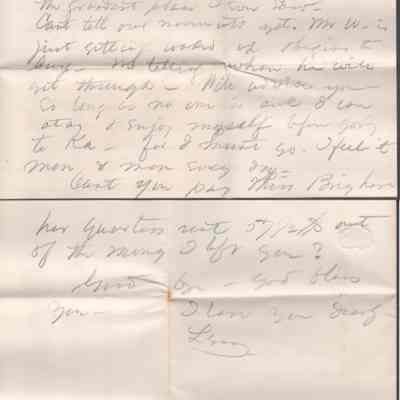 the grandest place I ever saw -
Cant tell our movements yet. Mr W. is
just getting and begins to
buy - No telling when he will
get through - Will advise you -
So long as no one is sick I can
stay & enjoy myself before going
to Ka - for I must go. I feel it
more & more every day -
Cant you pay Miss Brigham
her Quarters rent out
of the money I left you?
Good bye - God bless
you - I love you dearly